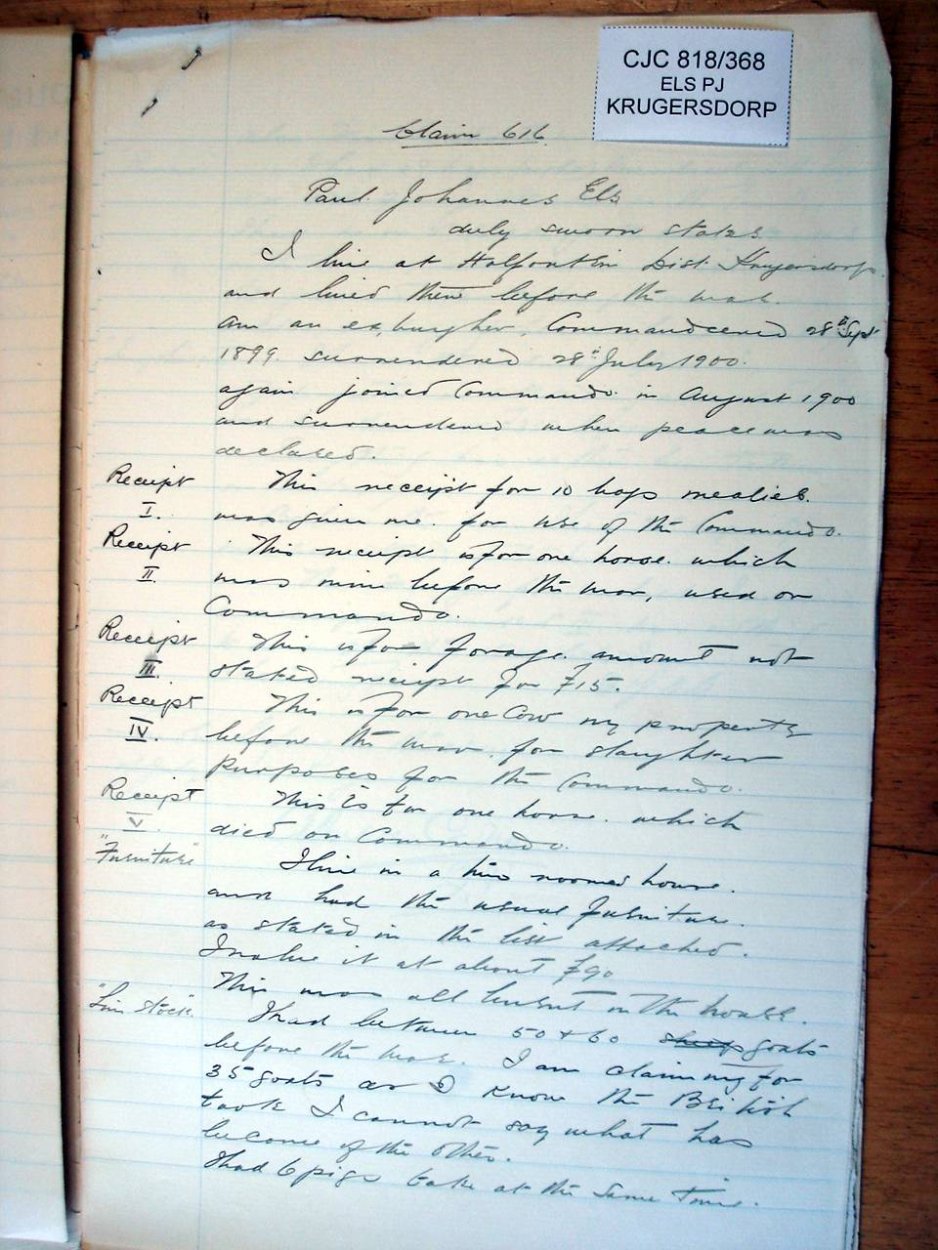 CJC 818/368
ELS PJ
KRUGERSDORP
Claim 616
Paul Johannes Els
duly sworn states
I live at Halfontein Dist Krugersdorp
and lived there before the war.
am an ex burgher. Commandeered 28th Sept
1899. surrendered 28th July 1900.
again joined Commando in August 1900
and surrendered when peace was
declared.
Receipt This receipt for 10 bags mealies.
I. was given me. for use of the Commando.
Receipt This receipt is for one horse. which
II. was mine before the war, used on
Commando.
Receipt This is for forage. amount not
III. stated receipt for £15.
Receipt This is for one Cow my property
IV. before the war. for slaughter
purposes for the Commando.
Receipt This is for one horse. which
V. died on Commando.
"Furniture" I live in a two roomed house.
and had the usual furniture.
as stated in the list attached.
I value it at about £90
This was all burnt in the house.
"Live stock" I had between 50 & 60 sheep goats
before the war. I am claiming for
35 goats as I know the British
took I cannot say what has
become of the others.
I had 6 pigs take at the same time.